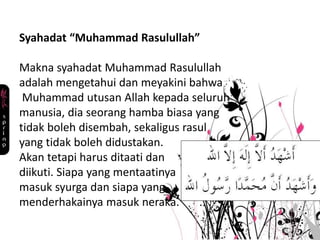 Syahadat “Muhammad Rasulullah”
Makna syahadat Muhammad Rasulullah
adalah mengetahui dan meyakini bahwa
Muhammad utusan Allah kepada seluruh
manusia, dia seorang hamba biasa yang
tidak boleh disembah, sekaligus rasul
yang tidak boleh didustakan.
Akan tetapi harus ditaati dan
diikuti. Siapa yang mentaatinya
masuk syurga dan siapa yang
menderhakainya masuk neraka.
أَشْهَدُ أَلاَّ إِلَهَ إِلاَّ الله
وَأَشْهَدُ أَنَّ مُحَمَّدًا رَّسُولُ الله
spring